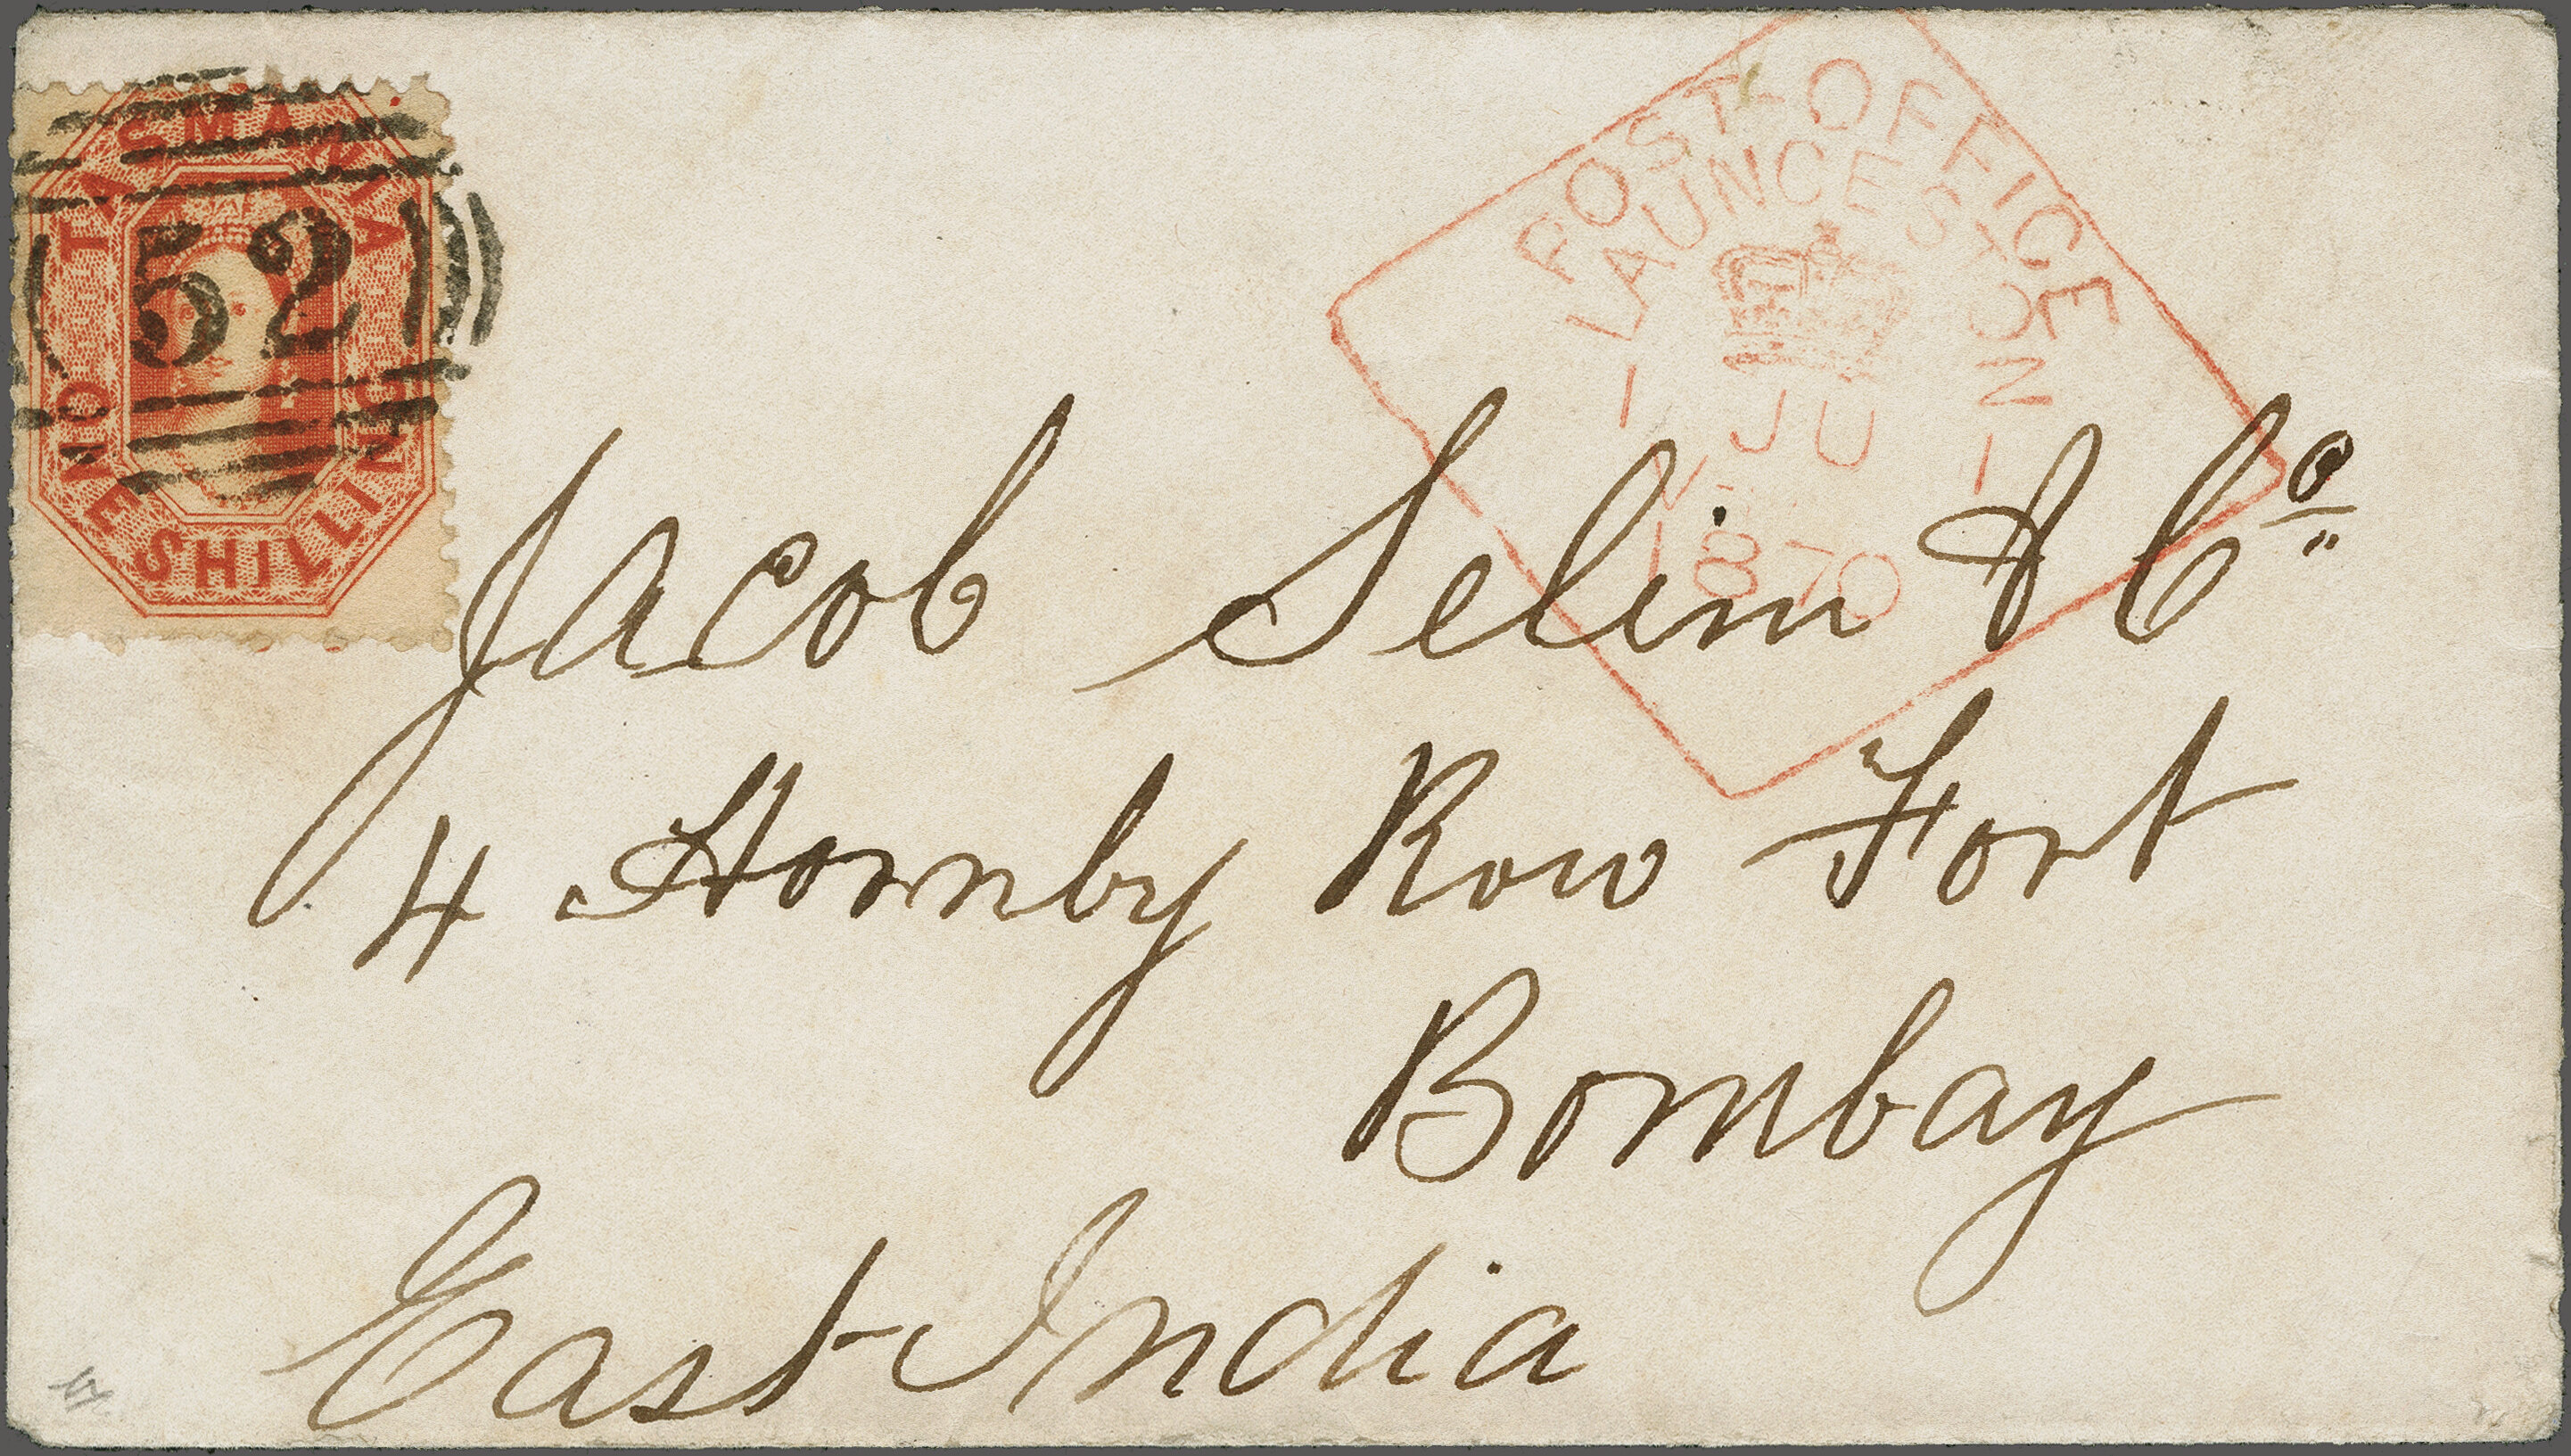 TASMANIA
52
ONE SHILLING
POST-OFFICE
-LAUNCESTON-
JU
1870
Jacob Selim & Co
4 Hornby Row Fort
Bombay
East India